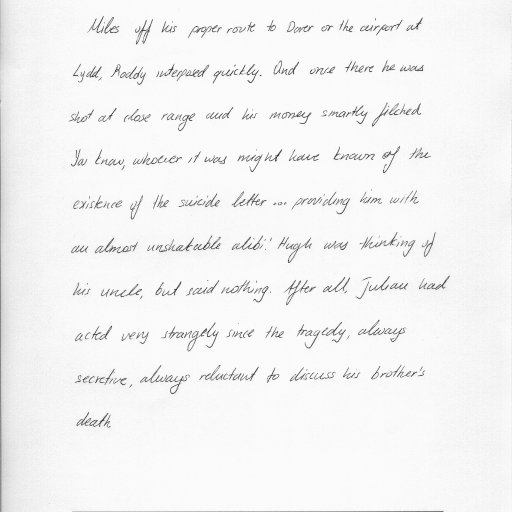 Miles off his proper route to Dover or the airport at
Lydd, Roddy interposed quickly. And once there he was
shot at close range and his money smartly filched
You know, whoever it was might have known of the
existence of the suicide letter ... providing him with
an almost unshakeable alibi.' Hugh was thinking of
his uncle, but said nothing. After all, Julian had
acted very strangely since the tragedy, always
secretive, always reluctant to discuss his brother's
death